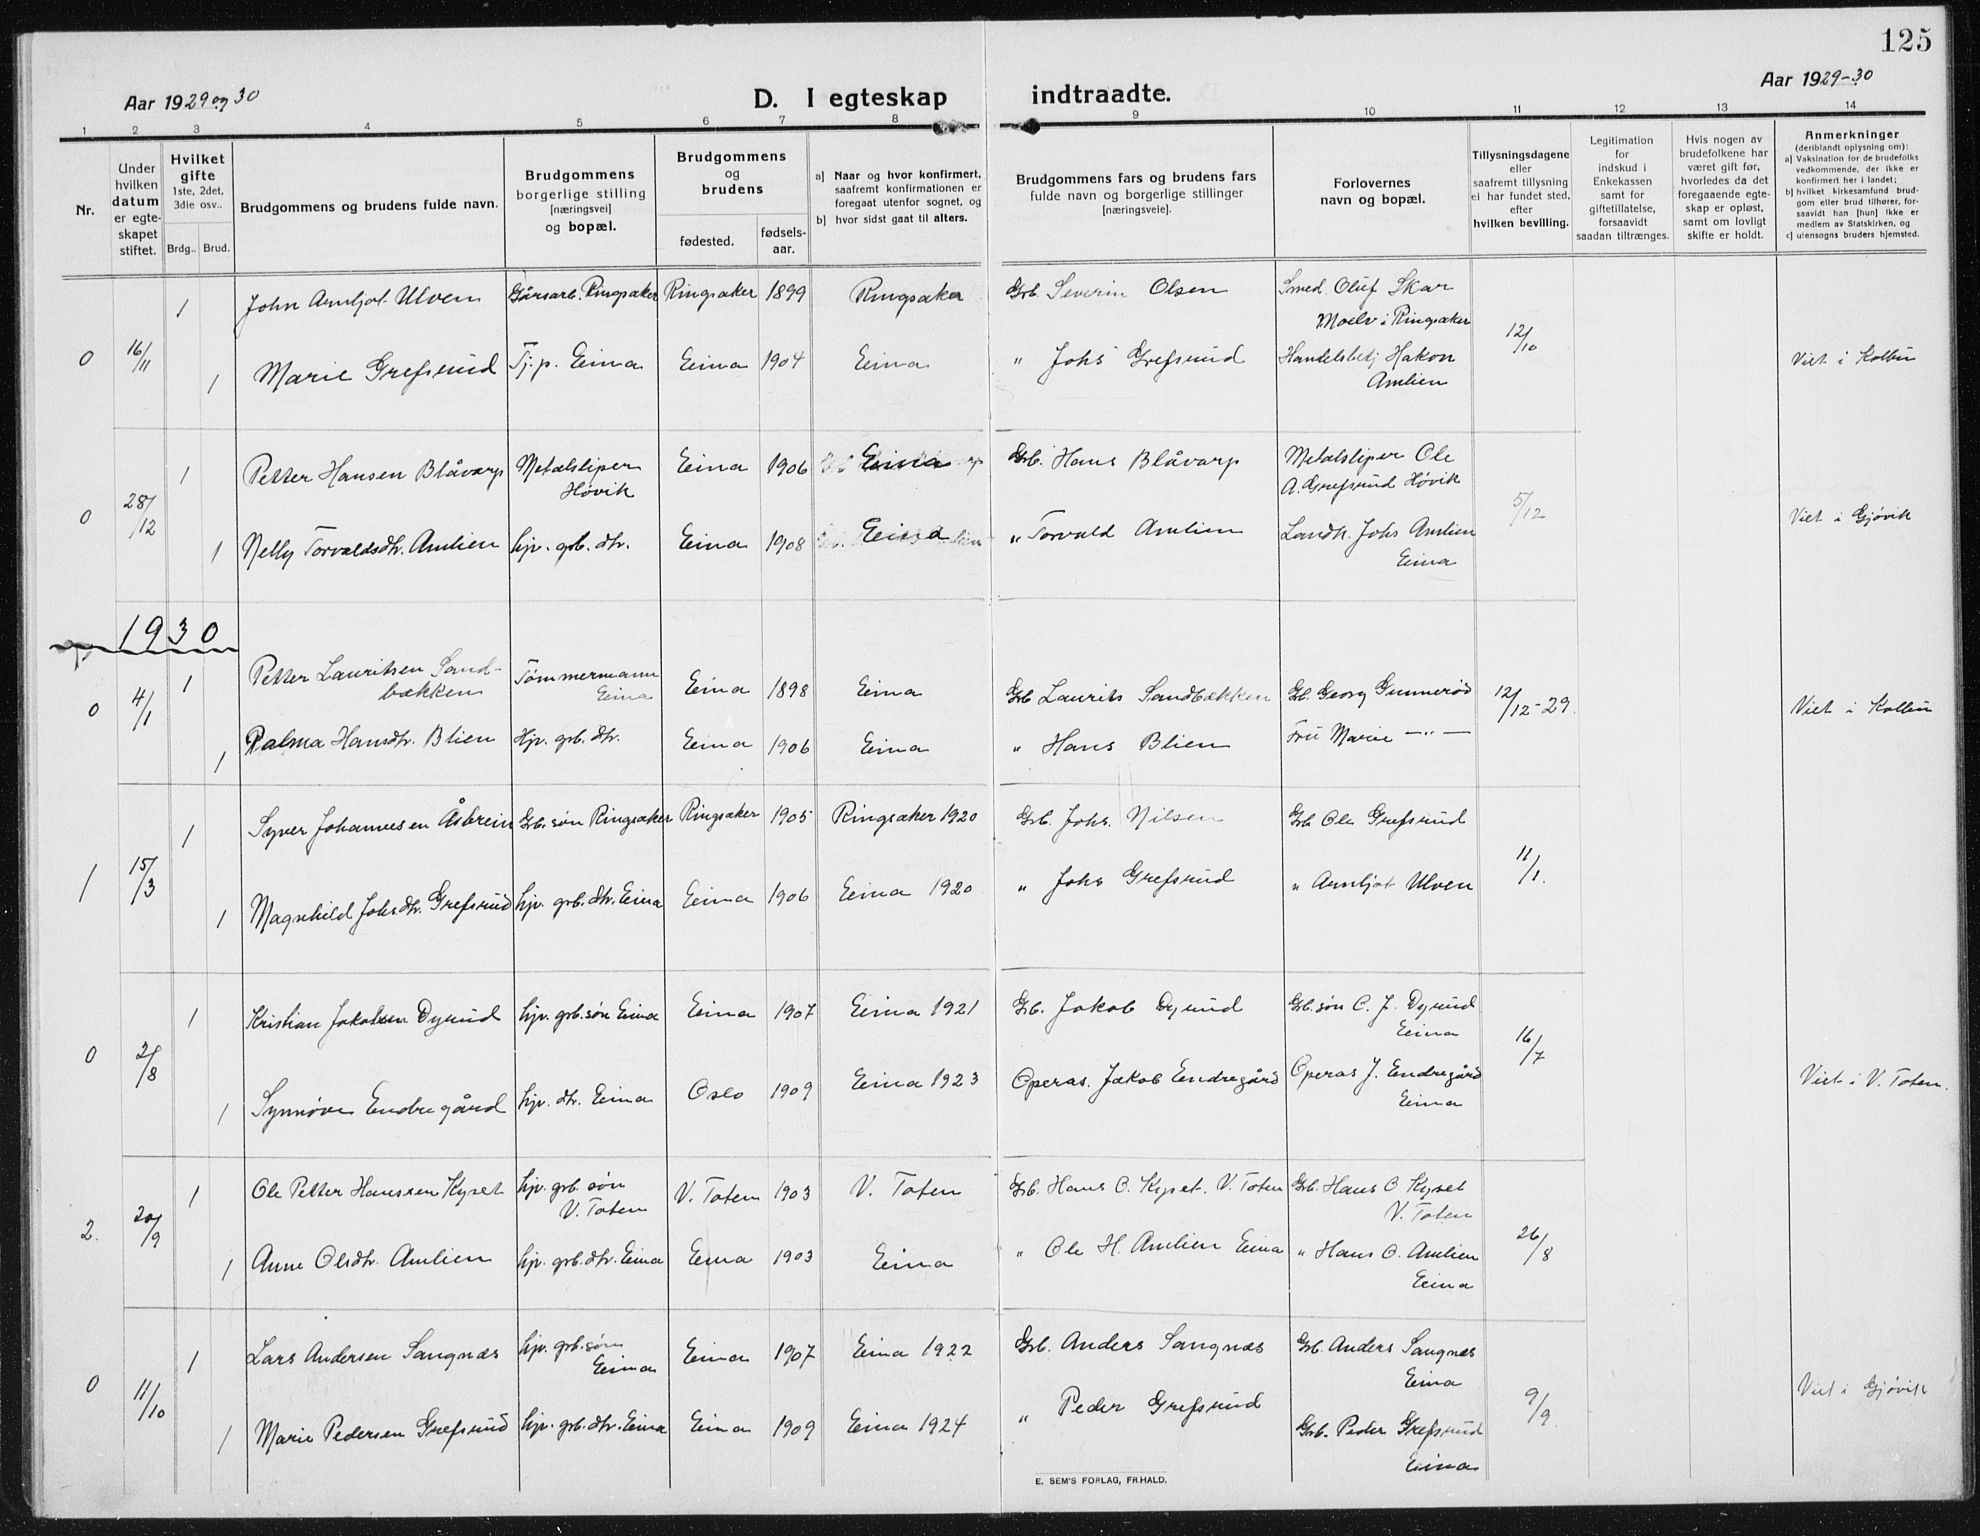 125
Aar 1929 og 30
D. I egteskap indtraadte.
Aar 1929-30
1 2 3 4 5 6 7 8 9 10 11 12 13 14
Nr.
Under hvilken datum er egte-skapet stiftet.
Hvilket gifte
1ste, 2det, 3die osv..
Brdg.. Brud.
Brudgommens og brudens fulde navn.
Brudgommens borgerlige stilling [næringsvei] og bopæl.
Brudgommens og brudens
fødested. fødsels-aar.
a] Naar og hvor konfirmert, saafremt konfirmationen er foregaat utenfor sognet, og
b] hvor sidst gaat til alters.
Brudgommens fars og brudens fars fulde navn og borgerlige stillinger [næringsveie].
Forlovernes navn og bopæl.
Tillysningsdagene eller saafremt tillysning ei har fundet sted, efter hvilken bevilling.
Legitimation for indskud i Enkekassen samt for giftetillatelse, forsaavidt saadan tiltrænges.
Hvis nogen av brudefolkene har været gift før, hvorledes da det foregaaende egte-skap er opløst, samt om lovligt skifte er holdt.
Anmerkninger
(deriblandt oplysning om):
a] Vaksination for de brudefolks vedkommende, der ikke er konfirmert her i landet;
b] hvilket kirkesamfund brud-gom eller brud tilhører, for-saavidt han [hun] ikke er medlem av Statskirken, og
c] utensogns bruders hjemsted.
0 16/11 1 John Arnljot Ulven Gårsarb. Ringsaker Ringsaker 1899 Ringsaker Grb. Severin Olsen Smed Oluf Skar
Moelv i Ringsaker 12/10
1 Marie Grefsrud Tj. p. Eina Eina 1904 Eina " Johs Grefsrud Handelsbetj Hakon
Amlien Viet i Kolbu
0 28/12 1 Petter Hansen Blåvarp Metalsliper
Høvik Eina 1906 Eina Grb. Hans Blåvarp Metalsliper Ole
A. Grefsrud Høvik 5/12
1 Nelly Torvaldsdtr. Amlien hjv. grb. dtr. Eina 1908 Eina " Torvald Amlien Landh. Johs Amlien
Eina Viet i Gjøvik
1930
0 4/1 1 Petter Lauritsen Sand-
bækken Tømmermann
Eina Eina 1898 Eina Grb Laurits Sandbækken Grb. Georg Gunnerød 12/12-29. Viet i Kolbu
1 Palma Hansdtr. Blien Hjv. grb. dtr. Eina 1906 Eina " Hans Blien Fru Marie —"—
1 15/3 1 Syver Johannesen Åsbrein Grb. søn Ringsaker Ringsaker 1905 Ringsaker 1920 Grb. Johs. Nilsen Grb Ole Grefsrud 11/1.
1 Magnhild Johs.dtr. Grefsrud hjv. grb. dtr. Eina Eina 1906 Eina 1920 " Johs Grefsrud " Arnljot Ulven
0 2/8 1 Kristian Jakobsen Dyrud hjv. grb. søn Eina Eina 1907 Eina 1921 Grb. Jakob Dyrud Grb. søn C. J. Dyrud
Eina 16/7
1 Synnøve Endregård hjv. dtr. Eina Oslo 1909 Eina 1923 Operas. Jakob Endregård Operas J. Endregård
Eina Viet i V. Toten.
2. 20/9 1 Ole Petter Hanssen Kyset hjv. grb. søn
V. Toten V. Toten 1903 V. Toten Grb. Hans O. Kyset. V. Toten Grb. Hans O Kyset
V. Toten 26/8
1 Anne Olsdtr. Amlien hjv. grb. dtr. Eina Eina 1903 Eina " Ole H. Amlien Eina " Hans O. Amlien
Eina
0 11/10 1 Lars Andersen Sangnæs hjv. grb. søn
Eina Eina 1907 Eina 1922 Grb. Anders Sangnæs Grb. Anders Sangnæs
Eina 9/9. Viet i Gjøvik
1 Marie Pedersen Grefsrud hjv. grb. dtr. Eina Eina 1909 Eina 1924 " Peder Grefsrud Grb. Peder Grefsrud
Eina
E. SEM'S FORLAG, FR.HALD.